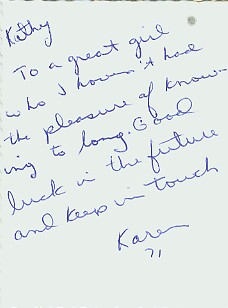 Kathy
To a great girl
who I haven't had
the pleasure of know-
ing to long. Good
luck in the future
and keep in touch
Karen
71